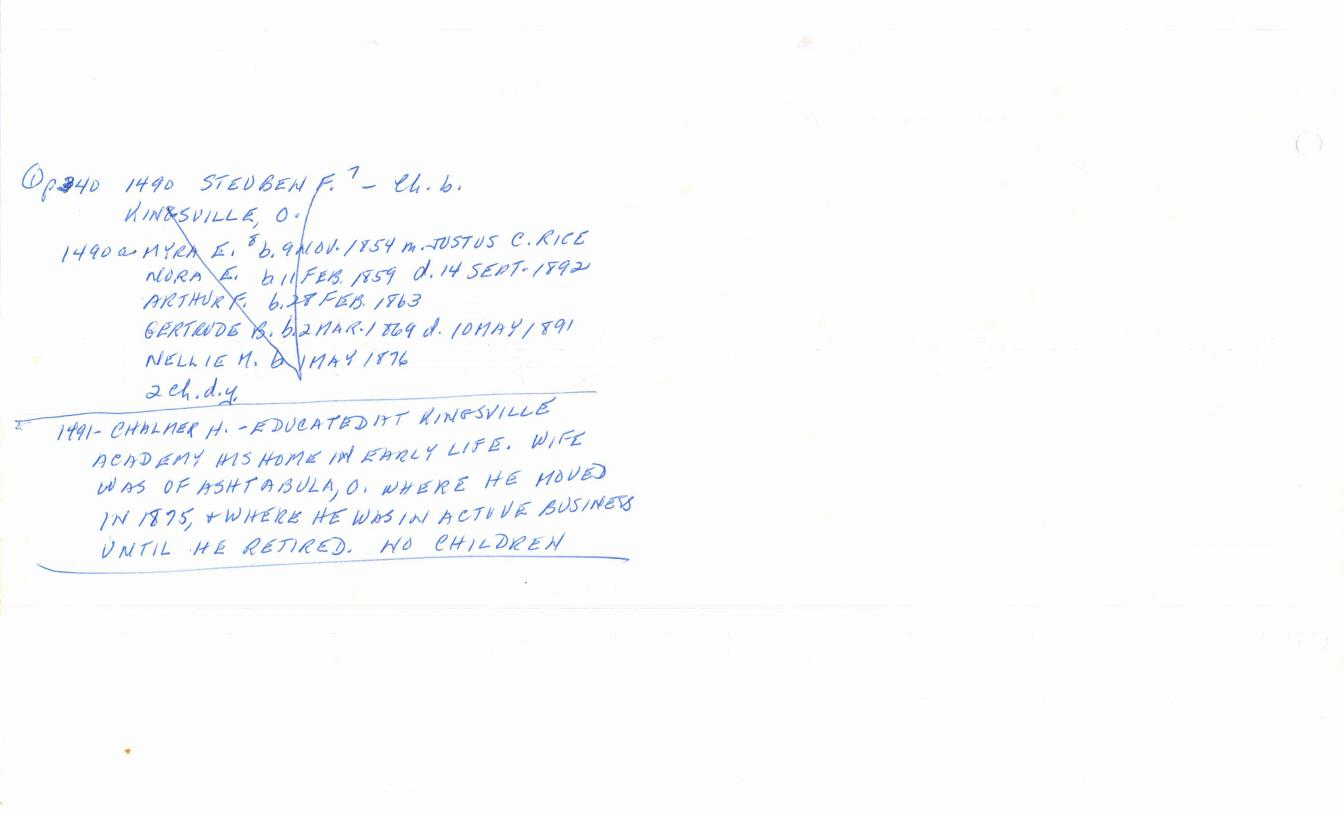 ① p340 1490 STEUBEN F.⁷ - Ch. b.
KINGSVILLE, O.
1490a MYRA E.⁸ b. 9 NOV. 1854 m. JUSTUS C. RICE
NORA E. b 11 FEB. 1859 d. 14 SEPT. 1892
ARTHUR F. b. 28 FEB. 1863
GERTRUDE B. b. 2 MAR. 1869 d. 10 MAY 1891
NELLIE M. b 1 MAY 1876
2 Ch. d. y.
2. 1491- CHALMER H. - EDUCATED AT KINGSVILLE
ACADEMY HIS HOME IN EARLY LIFE. WIFE
WAS OF ASHTABULA, O. WHERE HE MOVED
IN 1895, + WHERE HE WAS IN ACTIVE BUSINESS
UNTIL HE RETIRED. NO CHILDREN